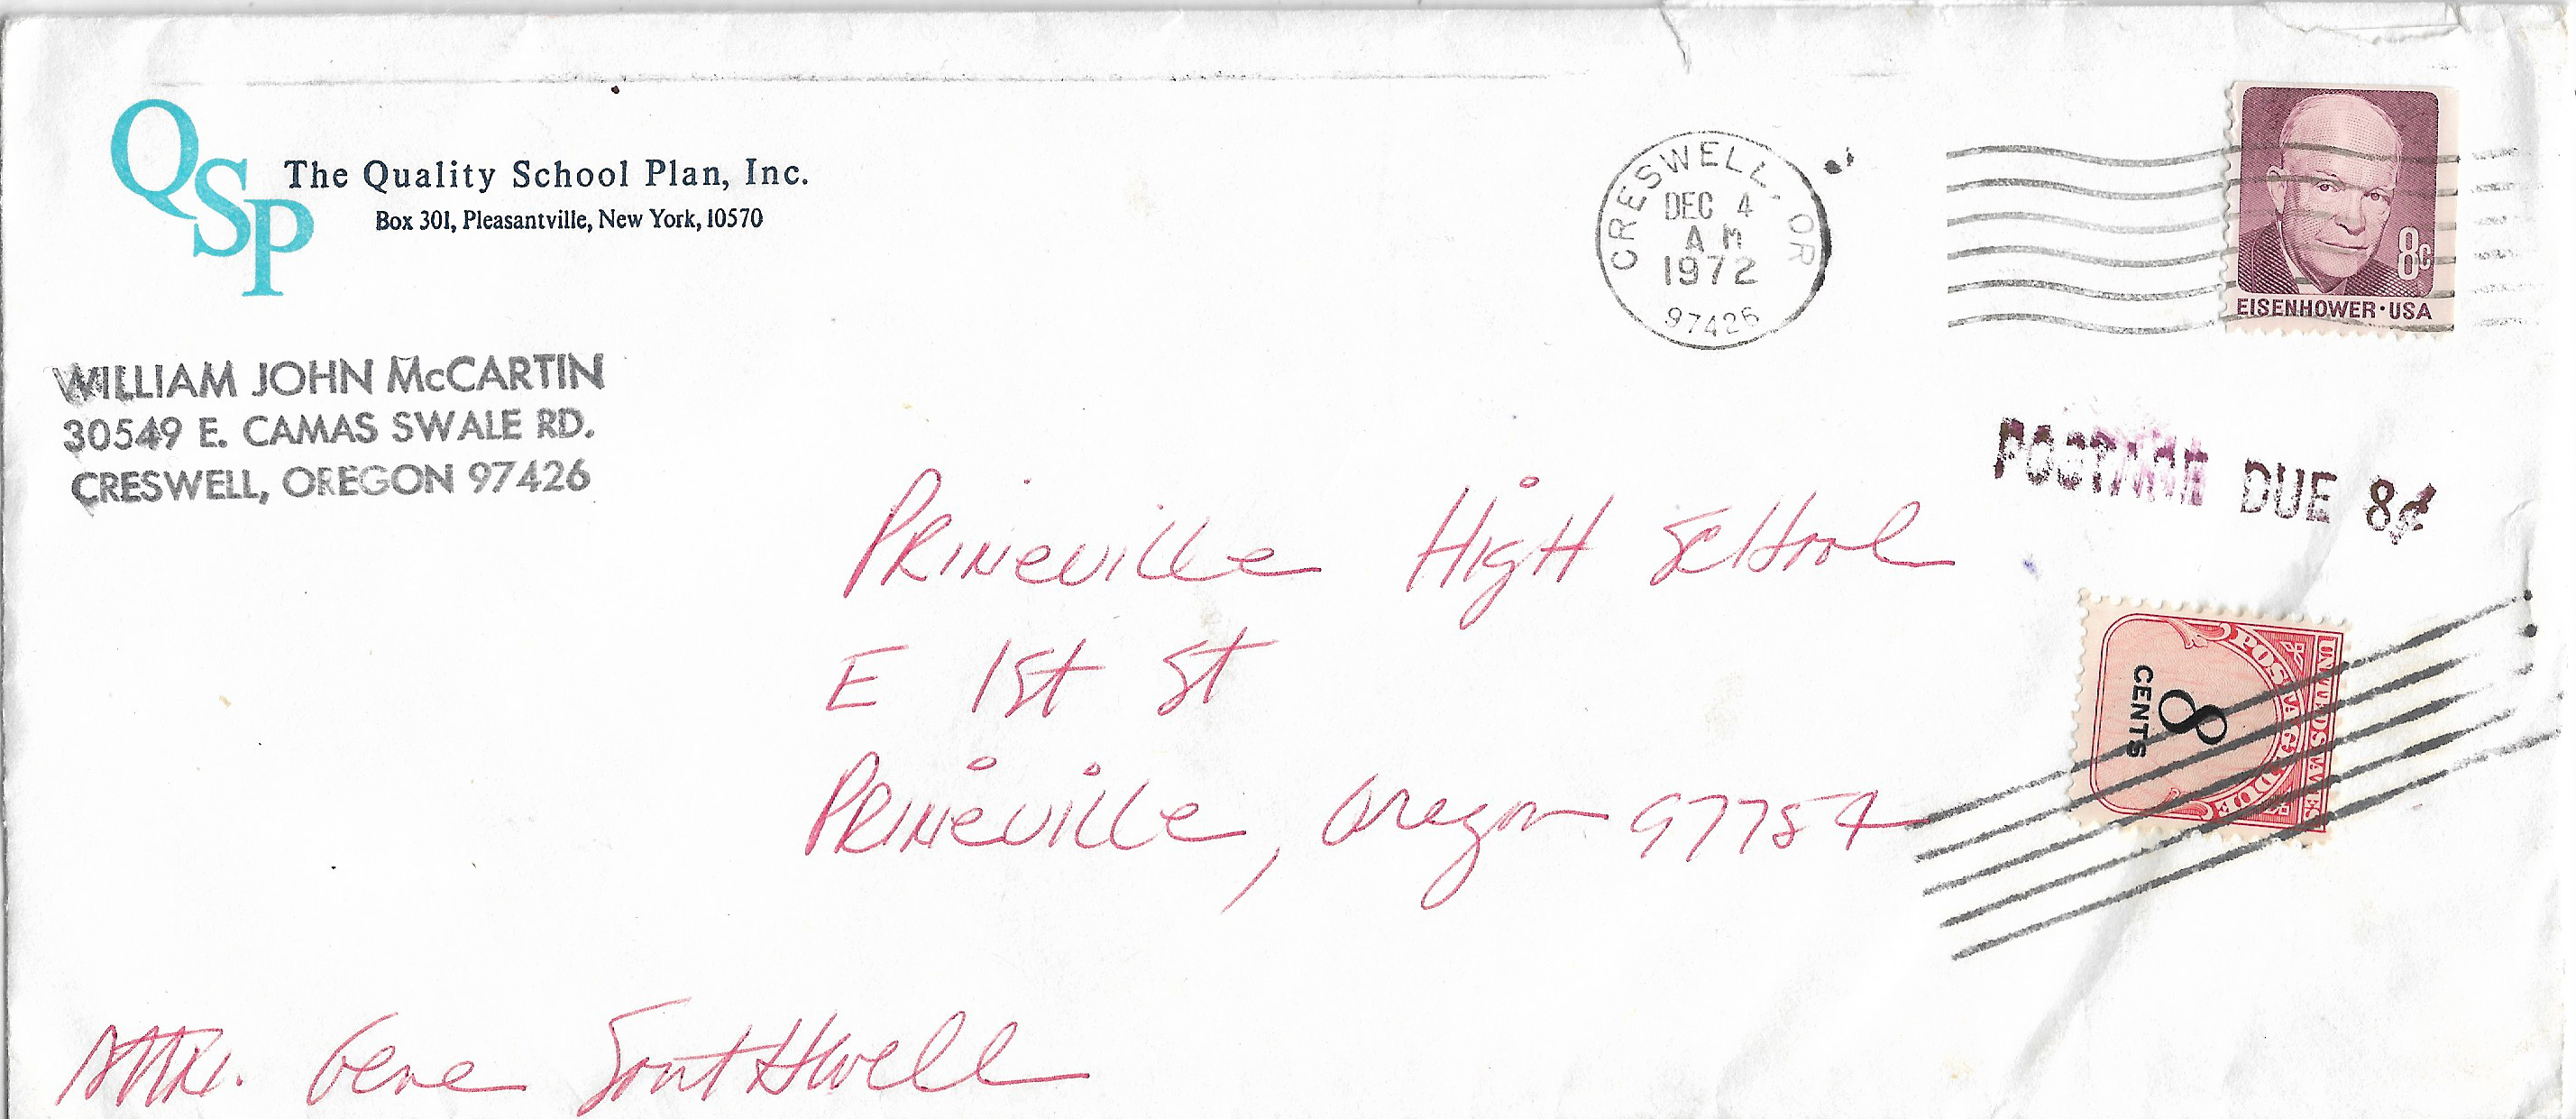 QSP
The Quality School Plan, Inc.
Box 301, Pleasantville, New York, 10570
WILLIAM JOHN McCARTIN
30549 E. CAMAS SWALE RD.
CRESWELL, OREGON 97426
CRESWELL, OR
DEC 4
AM
1972
97426
8c
EISENHOWER·USA
POSTAGE DUE 8¢
Prineville High School
E 1st St
Prineville, Oregon 97754
UNITED STATES
POSTAGE DUE
8
CENTS
Attn. Gene Southwell